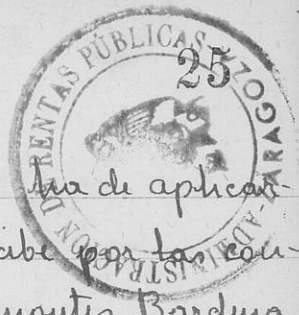 ADMINISTRACIÓN DE RENTAS PÚBLICAS ZARAGOZA
25
ha de aplicar-
cibe por las con-
montes Bardena